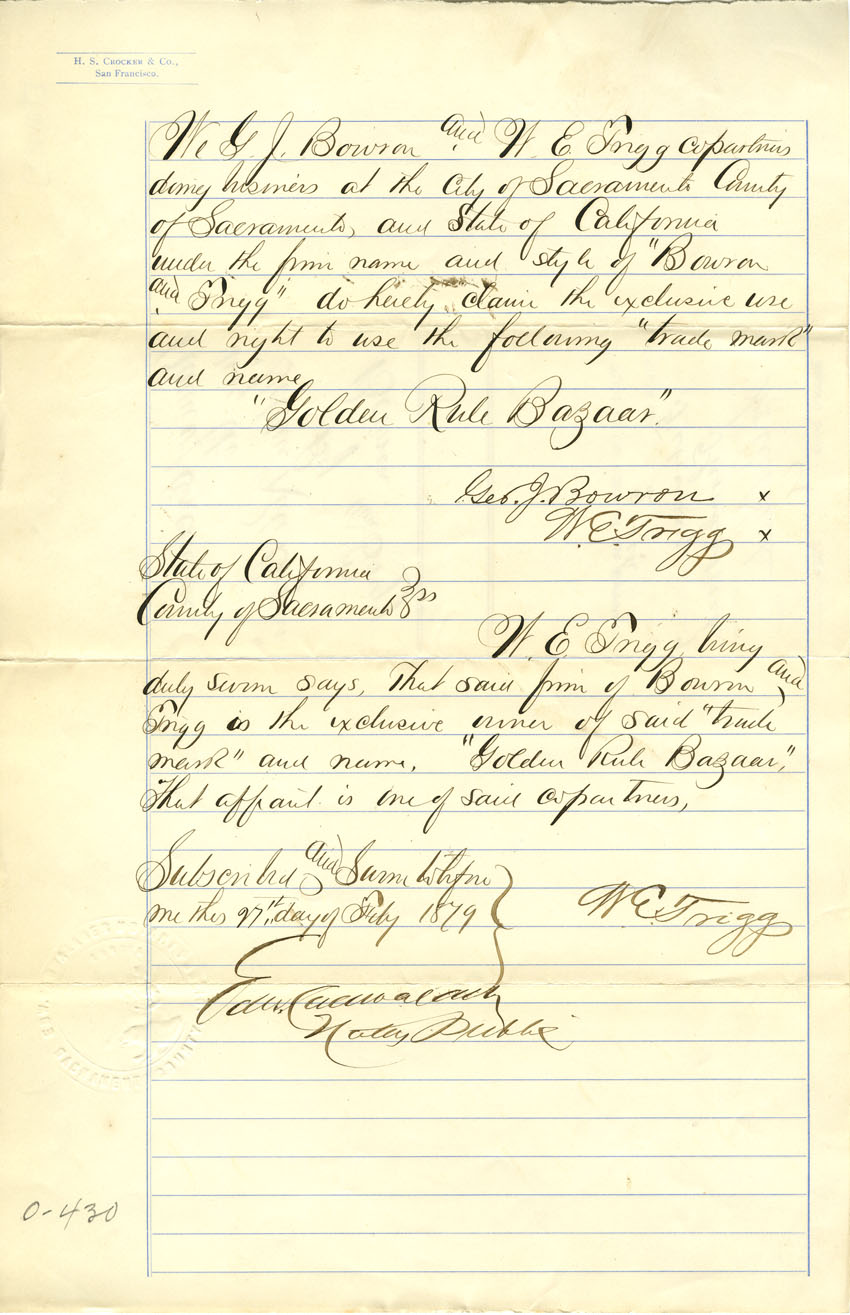 H. S. Crocker & Co.,
San Francisco.
We G. J. Bowron and W. E. Trigg copartners
doing business at the City of Sacramento County
of Sacramento, and State of California
under the firm name and style of "Bowron
and Trigg" do hereby claim the exclusive use
and right to use the following "trade mark"
and name
"Golden Rule Bazaar".
Geo. J. Bowron x
W. E. Trigg x
State of California
County of Sacramento } ss
W. E. Trigg being
duly sworn says, That said firm of Bowron and
Trigg is the exclusive owner of said "trade
mark" and name, "Golden Rule Bazaar",
That affiant is one of said copartners,
Subscribed and Sworn to before
me this 27th day of Feby 1879
W. E. Trigg
Edw. Cadwalader
Notary Public
SACRAMENTO COUNTY
0-430